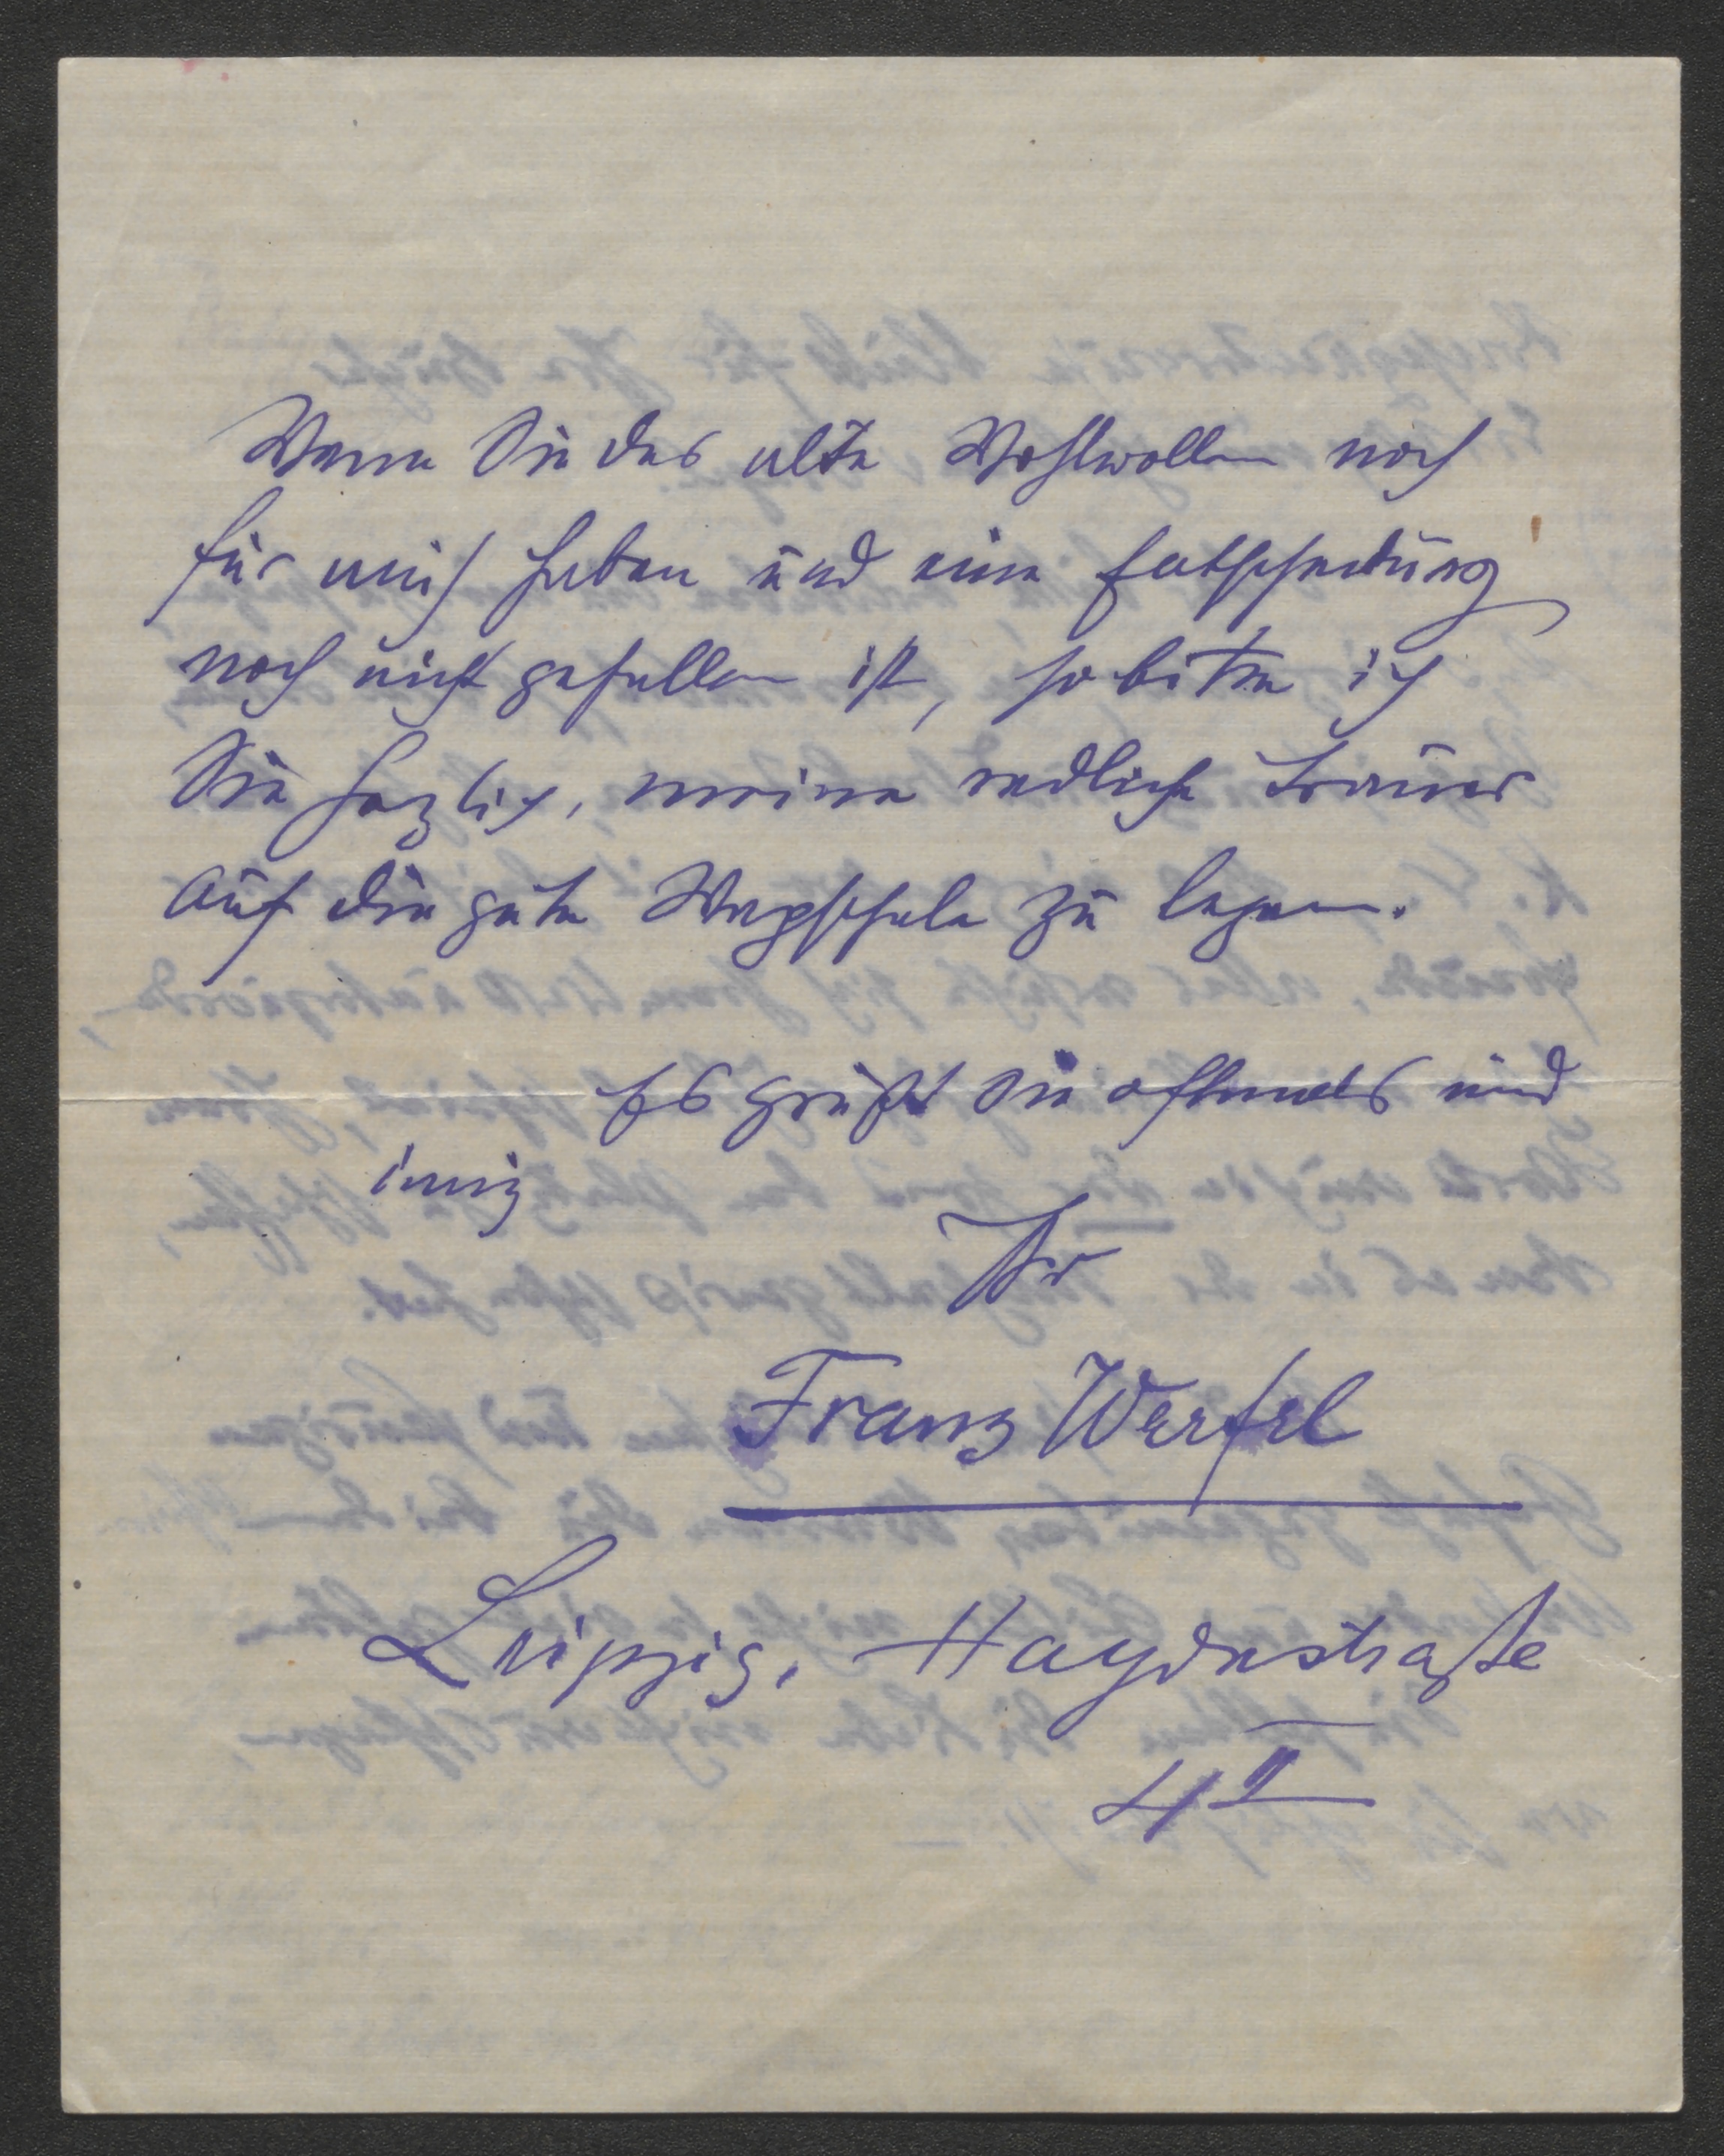 Wenn Sie das alte Wohlwollen noch
für mich haben und eine Entscheidung
noch nicht gefallen ist, so bitte ich
Sie herzlich, meine redliche Trauer
auf die gute Wagschale zu legen.
Es grüßt Sie oftmals und
innig
Ihr
Franz Werfel
Leipzig, Haydnstraße
4 II